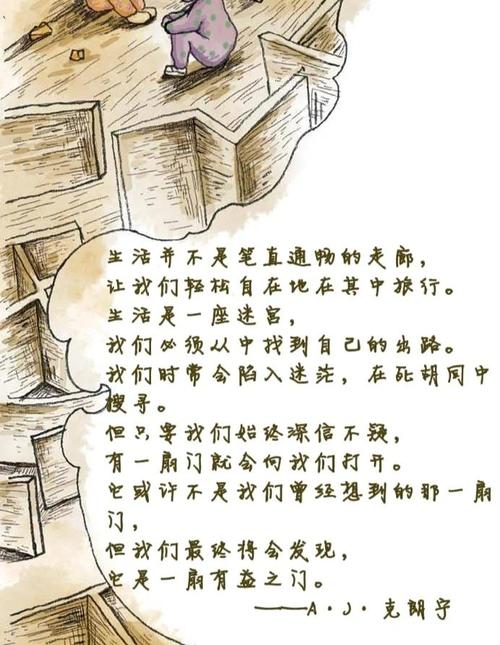 生活并不是笔直通畅的走廊,
让我们轻松自在地在其中旅行。
生活是一座迷宫,
我们必须从中找到自己的出路。
我们时常会陷入迷茫, 在死胡同中
搜寻。
但只要我们始终深信不疑,
有一扇门就会向我们打开。
它或许不是我们曾经想到的那一扇
门,
但我们最终将会发现,
它是一扇有益之门。
——A·J·克朗宁